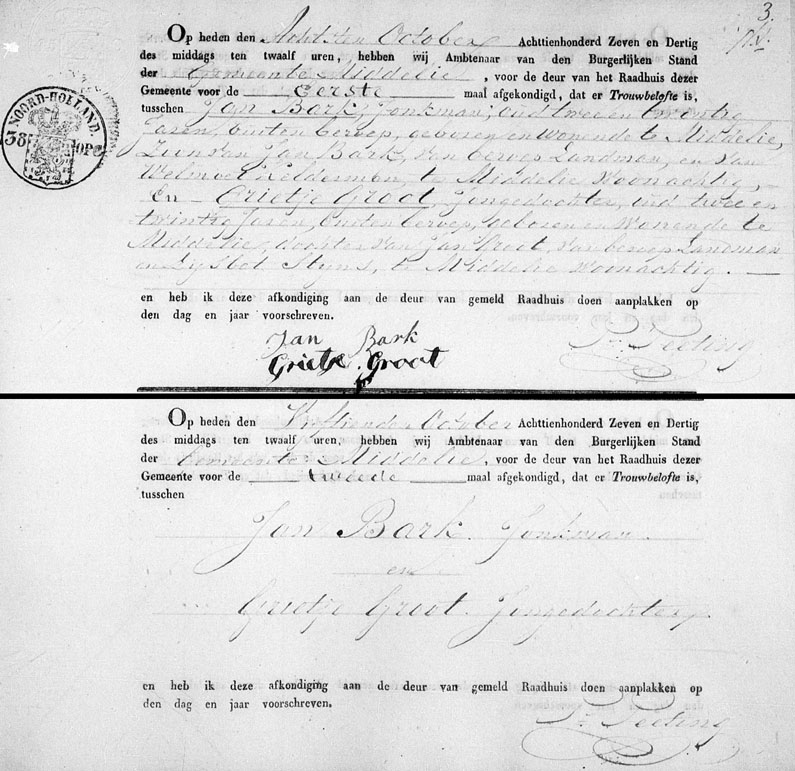 3.
Op heden den Achtsten October Achttienhonderd Zeven en Dertig
des middags ten twaalf uren, hebben wij Ambtenaar van den Burgerlijken Stand
der Gemeente Middelie, voor de deur van het Raadhuis dezer
Gemeente voor de Eerste maal afgekondigd, dat er Trouwbelofte is,
tusschen Jan Bark, Jonkman, oud twee en twintig
Jaren, buiten beroep, geboren en wonende te Middelie,
Zoon van Jan Bark, van beroep Landman, en van
Welmoet Kelderman, te Middelie Woonachtig,
En Grietje Groot, Jongedochter, oud twee en
twintig Jaren, buiten beroep, geboren en Wonende te
Middelie, dochter van Jan Groot, van beroep Landman
en Lysbet Styns, te Middelie Woonachtig.
NOORD-HOLLAND.
38 OPC
en heb ik deze afkondiging aan de deur van gemeld Raadhuis doen aanplakken op
den dag en jaar voorschreven.
Jan Bark
Grietje Groot
Op heden den Vyftiende October Achttienhonderd Zeven en Dertig
des middags ten twaalf uren, hebben wij Ambtenaar van den Burgerlijken Stand
der Gemeente Middelie, voor de deur van het Raadhuis dezer
Gemeente voor de tweede maal afgekondigd, dat er Trouwbelofte is,
tusschen
Jan Bark. Jonkman.
en
Grietje Groot. Jongedochter.
en heb ik deze afkondiging aan de deur van gemeld Raadhuis doen aanplakken op
den dag en jaar voorschreven.